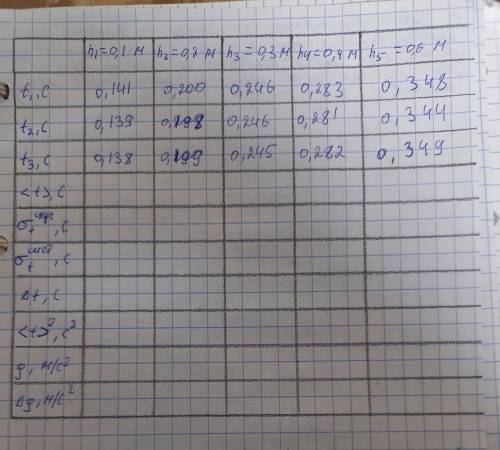 h₁=0,1 м h₂=0,2 м h₃=0,3 м h₄=0,4 м h₅=0,6 м
t₁, с 0,141 0,200 0,246 0,283 0,348
t₂, с 0,139 0,198 0,246 0,281 0,344
t₃, с 0,138 0,199 0,245 0,282 0,349
<t>, с
σₜ, с
σₜ сист, с
Δt, с
<t>², с²
g, м/с²
Δg, м/с²